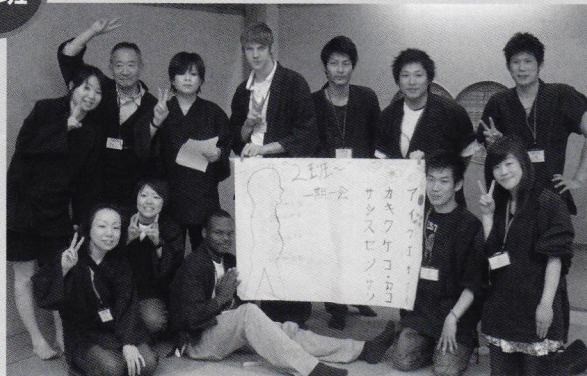 2班〜
一期一会
アイウエオ
カキクケコ・カコ
サシスセソ サソ